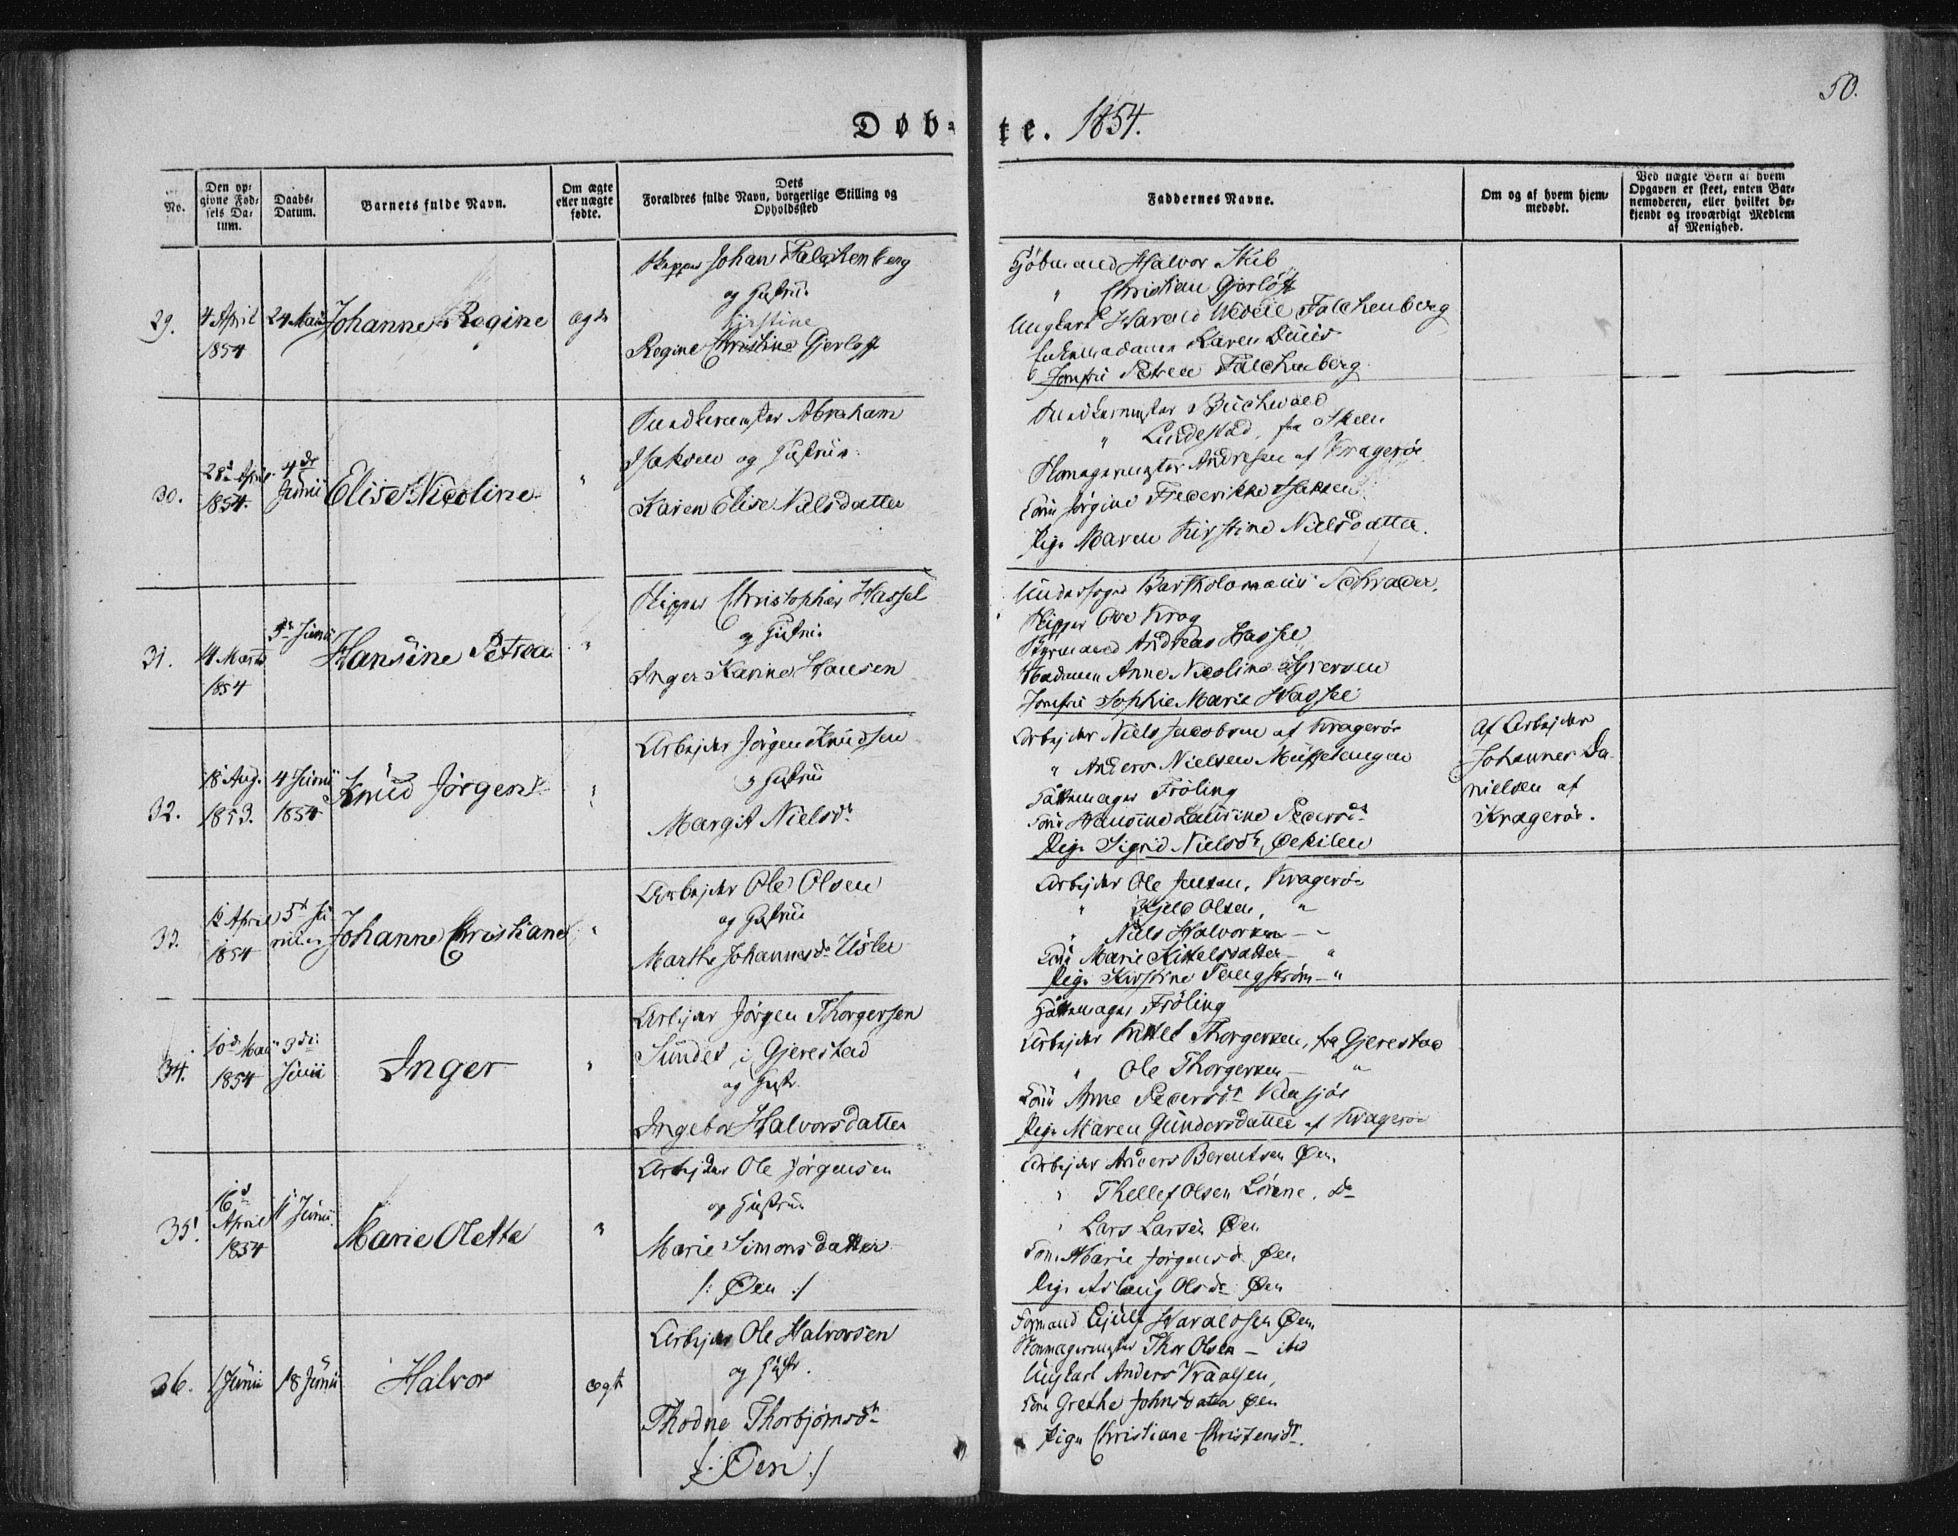 50.
Døb= te. 1854.
No.
Den op=
givne Fød=
sels Da=
tum.
Daabs=
Datum.
Barnets fulde Navn.
Om ægte
eller uægte
fødte.
Dets
Forældres fulde Navn, borgerlige Stilling og
Opholdssted
Faddernes Navne.
Om og af hvem hjem=
medøbt.
Ved uægte Børn af hvem
Opgaven er skeet, enten Bar=
nemoderen, eller hvilket be=
kjendt og troværdigt Medlem
af Menighed.
29.
4 April
1854
24 Mai
Johanne Regine
ægte
Skipper Johan Falckenberg
og Hustrue
Kirstine
Regine Christine Gjerløff
Kjøbmand Halvor Stub
" Christian Gjerløff
Ungkarl Harald Wedele Falckenberg
Enkemadame Karen Duus
Jomfru Petrea Falckenberg
30.
28de April
1854.
4de
Junii
Elise Nicoline
"
Abraham
Isaksen og Hustrue
Karen Elise Nilsdatter
Buchwald
" Lindestad, fra Skeen
Andresen af Kragerøe
Kone Jørgine Frederikke Isaksen
Pige Maren Kirstine Nielsdatter.
31.
4 Marts
1854
5te Junii
Hansine Petrea
"
Skipper Christopher Hassel
og Hustrue
Inger Karine Hansen
Bartholomæus Schrader,
Skipper Ove Krog
Styrmand Andreas Hassel
Madame Anne Nicoline Syversen
Jomfru Sophie Marie Hassel
32.
18 Aug.
1853.
4 Junii
1854
Knud Jørgen
"
Arbejder Jørgen Knudsen
og Hustrue
Margit Nielsdr
Arbejder Niels Jacobsen af Kragerøe
" Anders Nielsen
Hattemager Frøling
Kone Hansine Laurine Pedersdr
Pige Sigrid Nielsdr,
Af Arbejder
Johannes Da=
nielsen af
Kragerøe.
33.
12 April
1854
5te Ju
Johanne Christiane
"
Arbejder Ole Olsen
og Hustrue
Marthe Johannesdr Usler
Arbejder Ole Jensen, Kragerøe
" Kjeld Olsen, "
" Niels Halvorsen — "
Kone Marie Kittelsdatter — "
Pige Kirstine Tengstrøm — "
34.
10de Mai
1854
3die
Junii
Inger
"
Arbejder Jørgen Thorgersen
Sundet i Gjerestad
og Hustr.
Ingebor Halvorsdatter
Hattemager Frøling
Arbejder Kittel Thorgersen, fra Gjerestad
" Ole Thorgersen — "
Kone Anne Pedersdr
Pige Maren Gundersdatter af Kragerøe
35.
16de
April
1854
11 Junii
Marie Olette
"
Arbejder Ole Jørgensen
og Hustrue
Marie Simonsdatter
/: Øen :/
Arbejder Anders Berentsen Øen,
" Thellef Olsen
" Lars Larsen Øen
Kone Marie Jørgensdr Øen
Pige Aslaug Olsdr Øen
36.
1 Junii
18 Junii
Halvor
ægte
Arbejder Ole Halvorsen
og Hustr.
Thodne Thorbjørnsdr
/: Øen :/
Haraldsen Øen,
Thor Olsen — ibid
Ungkarl Anders Kraagsen,
Kone Grethe Johnsdatter Øen
Pige Christiane Christensdr.